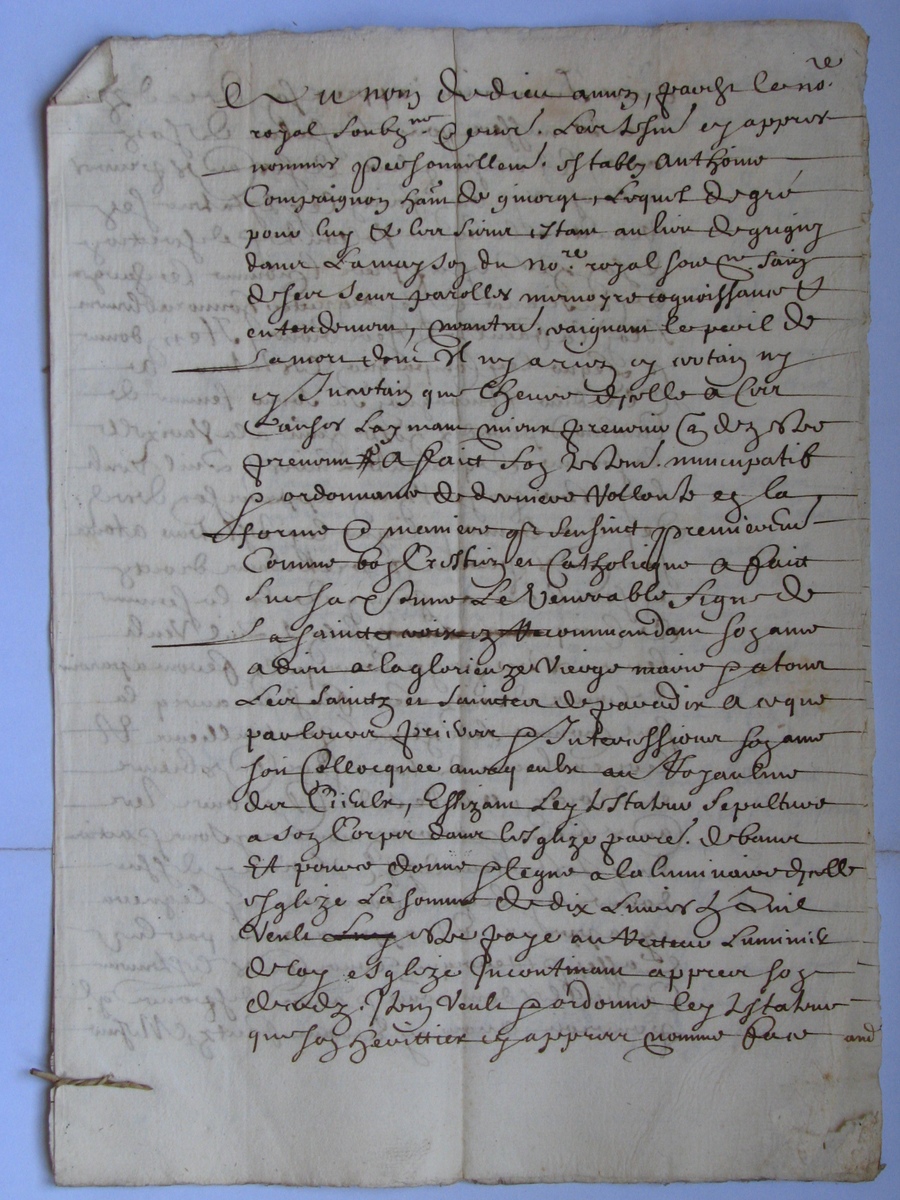 Au nom de dieu amen, par devant le no.re
royal soubz.ne & pnr. les tesm. cy appres
nommes personnellem. estably Anthoine
Compaignon habt de lequel de gre
pour luy & les siens estant au lieu de grigny
dans la mayson du No.re royal soubz.ne saing
de ses sens parolles memoyre cognoissance &
entendement, neantm. craignant le peril de
la mort dont Il ny a rien cy certain ny
cy Incertain que lheure dicelle a ces
Causes laymant mieux prevenir q dezestre
prevenu A faict son testem. nuncupatif
& ordonnance de derniere vollonte en la
forme & maniere q sensuict premierem
Comme bon Crestien et Catholicque a faict
sur sa psonne le Venerable signe de
la saincte croix en recommandant son ame
a dieu a la glorieuze Vierge marie & a tous
les sainctz et sainctes de paradix a ce que
par leurs prieres & Intercessions son ame
soit Collocquee avecq eulx au Royaulme
des Cieulx, Eslizant ley testateur sepulture
a son Corps dans lesglize parro. de
Et pour ce donne & legue a la luminaire dicelle
esglize la somme de dix livres quil
veult luy estre paye au recteur luminier
de lay esglize Incontinant appres son
decedz. Item veult & ordonne ley testateur
que son herittier cy appres nomme face